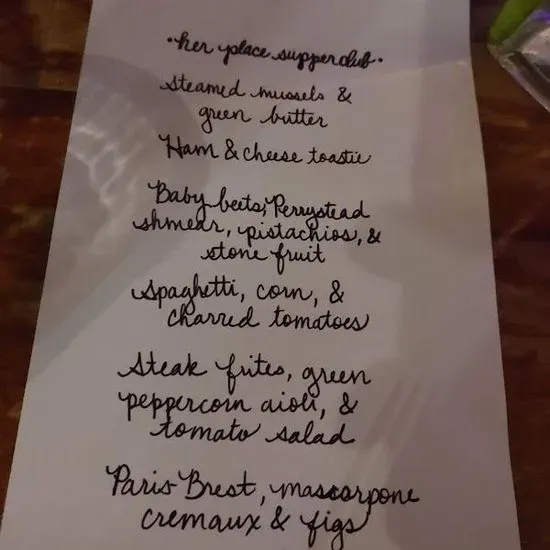 •her place supperclub•
steamed mussels &
green butter
Ham & cheese toastie
Baby beets, Perrystead
shmear, pistachios, &
stone fruit
spaghetti, corn, &
charred tomatoes
steak frites, green
peppercorn aioli, &
tomato salad
Paris Brest, mascarpone
cremaux & figs